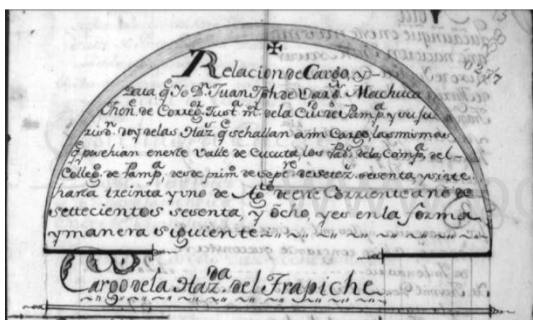 Relacion de Cargo, y
Data q.e Yo D.n Juan Jph de Vargas Machuca
then.te de Correg.or Just.a m.or de la Ciu.d de Pamp.a y su ju
risd.on doy de las Haz.as q.e se hallan a mi Cargo, las mismas
q.e poschian en este Valle de Cucuta, los Pad.s de la Comp.a del
Colleg.o de Pamp.a, desde prim.o de Sept.re de setez.s setenta, y siete
hasta treinta y uno de Ag.to de este Corriente año de
settecientos setenta, y ocho, y es en la forma
y manera siguiente
Cargo de la Haz.da del Trapiche